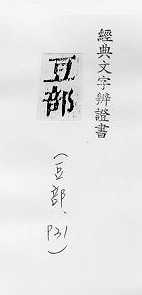 經典文字辨證書
豆部
(豆部、P31)